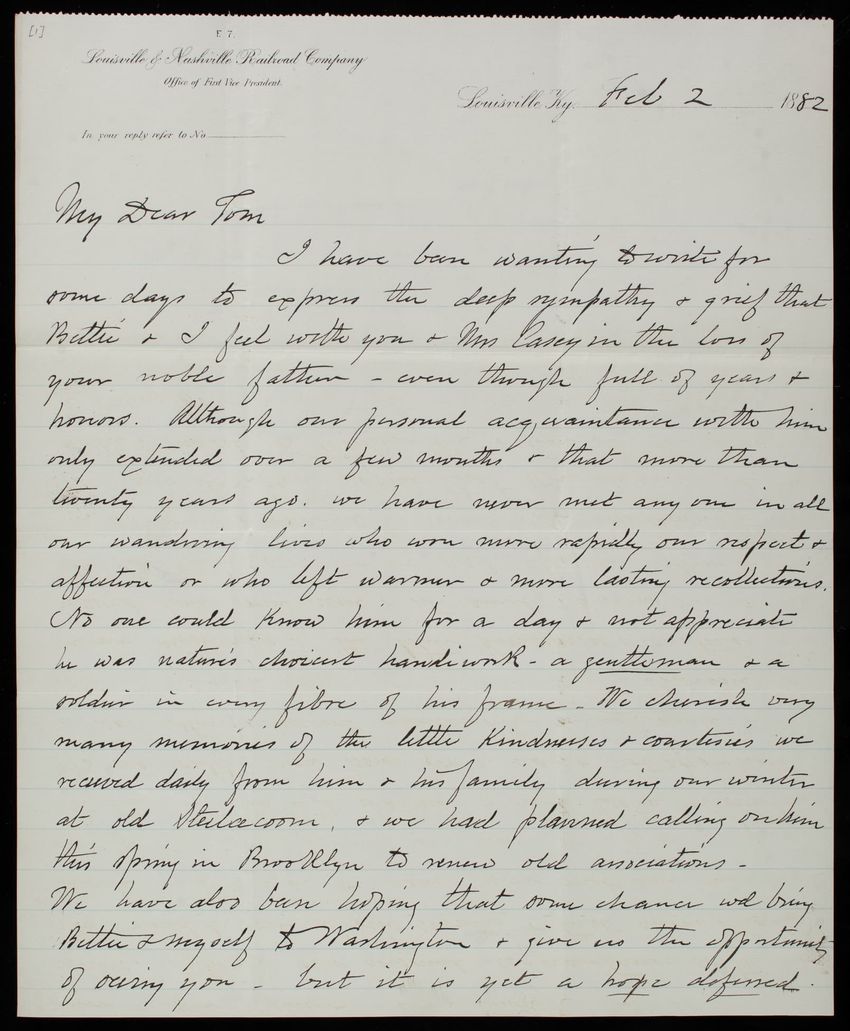 [1]
E 7.
Louisville & Nashville Railroad Company
Office of First Vice President.
Louisville, Ky. Feb 2 1882
In your reply refer to No.
My Dear Tom
I have been wanting to write for
some days to express the deep sympathy & grief that
Bettie & I feel with you & Mrs Casey in the loss of
your noble father - even though full of years &
honors. Although our personal acquaintance with him
only extended over a few months & that more than
twenty years ago. we have never met any one in all
our wandering lives who won more rapidly our respect &
affection or who left warmer & more lasting recollections.
No one could know him for a day & not appreciate
he was nature's choicest handiwork - a gentleman & a
soldier in every fibre of his frame - We cherish very
many memories of the little kindnesses & courtesies we
received daily from him & his family during our winter
at old Steilacoom, & we had planned calling on him
this spring in Brooklyn to renew old associations -
We have also been hoping that some chance wd bring
Bettie & myself to Washington & give us the opportunity
of seeing you - but it is yet a hope deferred.